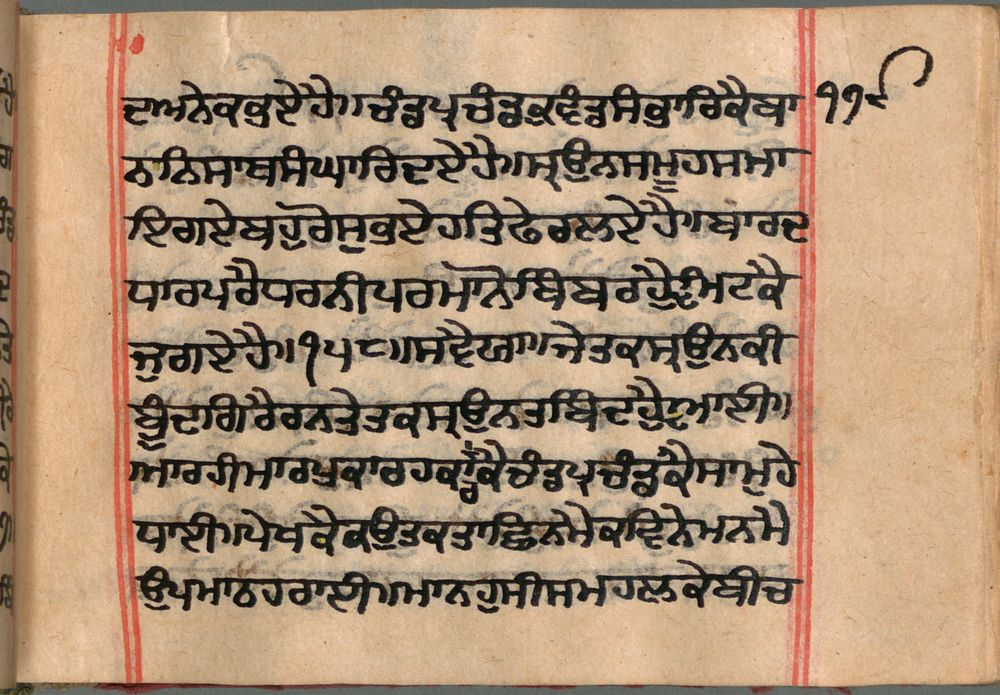 ਦਾਅਨੇਕਕੁਏਹੈ॥ਚੰਡਪ੍ਰਚੰਡਕੁਵੰਡਸੰਭਾਰਿਕੈਬਾ ੧੧੯
ਨਨਿਸਾਥਸੰਘਾਰਿਦਏਹੈ॥ਸ੍ਰਉਨਸਮੂਹਸਮਾ
ਇਗਏਬਹੁਰੋਸੁਕੁਏਹਤਿਢੇਰਲਏਹੈ॥ਬਾਰਦ
ਧਾਰਪਰੈਧਰਨੀਪਰਮਾਨੋਬਿੰਬਰਹ੍ਵੈਮਿਟਕੈ
ਜੁਗਏਹੈ॥੧੫੮॥ਸਵੈਯਾ॥ਜੇਤਕਸ੍ਰਉਨਕੀ
ਬੂੰਦਗਿਰੈਰਨਤੇਤਕਸ੍ਰਉਨਤਬਿੰਦਹ੍ਵੈਆਈ॥
ਮਾਰਹੀਮਾਰਪੁਕਾਰਹਕਾਰਕੈਚੰਡਪ੍ਰਚੰਡਕੈਸਾਮੁਹੇ
ਧਾਈ॥ਪੇਖਕੈਕਉਤਕਤਾਛਿਨਮੈਕਵਿਨੇਮਨਮੈ
ਉਪਮਾਠਹਰਾਈ॥ਮਾਨਹੁਸੀਸਮਹਲਕੇਬੀਚ